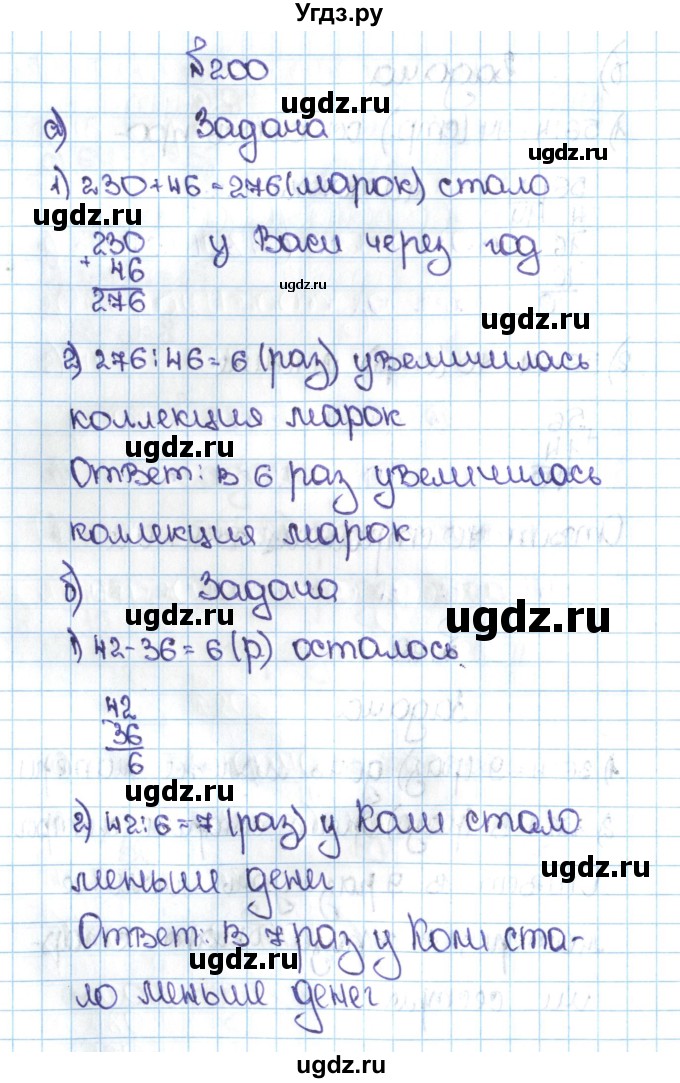 Угдз.ру
№200
ugdz.ru
а) Задача
1) 230+46=276(марок) стало
ugdz.ru
230 у Васи через год
+ 46
ugdz.ru
276
ugdz.ru
2) 276:46=6 (раз) увеличилась
коллекция марок
ugdz.ru
Ответ: в 6 раз увеличилась
коллекция марок
б) Задача
ugdz.ru
ugdz.ru
1) 42-36=6(р) осталось.
42
- 36
6
ugdz.ru
2) 42:6=7 (раз) у Коли стало
ugdz.ru
меньше денег
Ответ: в 7 раз у Коли ста-
ugdz.ru
ло меньше денег
ugdz.ru